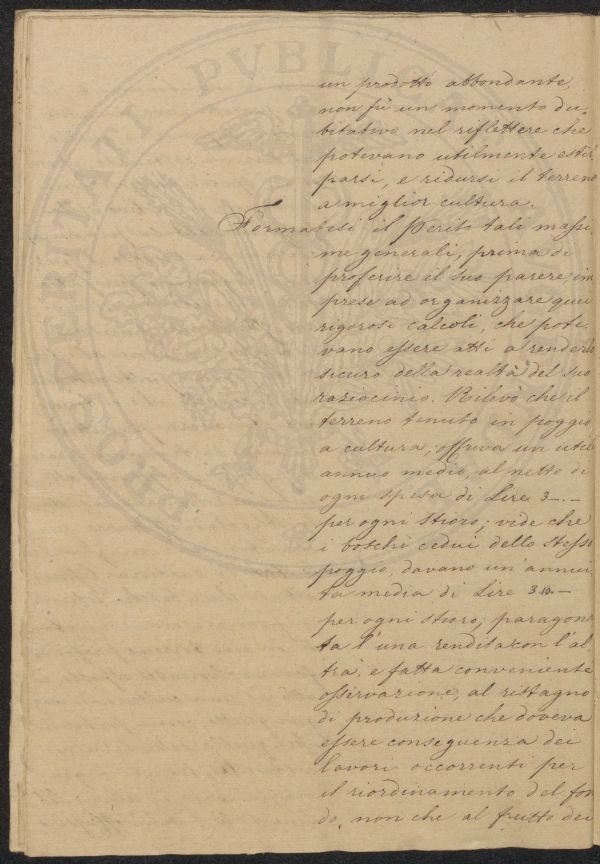 un prodotto abbondante,
non fù un momento du-
bitativo nel riflettere che
potevano utilmente estir
parsi, e ridursi il terreno
a miglior cultura.
Formatesi il Perito tali massi
me generali, prima di
proferire il suo parere, im
prese ad organizzare quei
rigorosi calcoli, che pote-
vano essere atti a renderlo
sicuro della realtà del suo
raziocinio. Rilevò che il
terreno tenuto in poggio
a cultura, offriva un util
annuo medio, al netto di
ogni spesa di Lire 3_._
per ogni stioro; vide che
i boschi cedui dello stesso
poggio, davano un annui
tà media di Lire 3.10._
per ogni stioro; paragona
ta l'una rendita con l'al
tra, e fatta conveniente
osservazione, al ristagno
di produzione che doveva
essere conseguenza dei
lavori occorrenti per
il riordinamento del fon
do, non che al frutto dei
PROSPERITATI PVBLIC